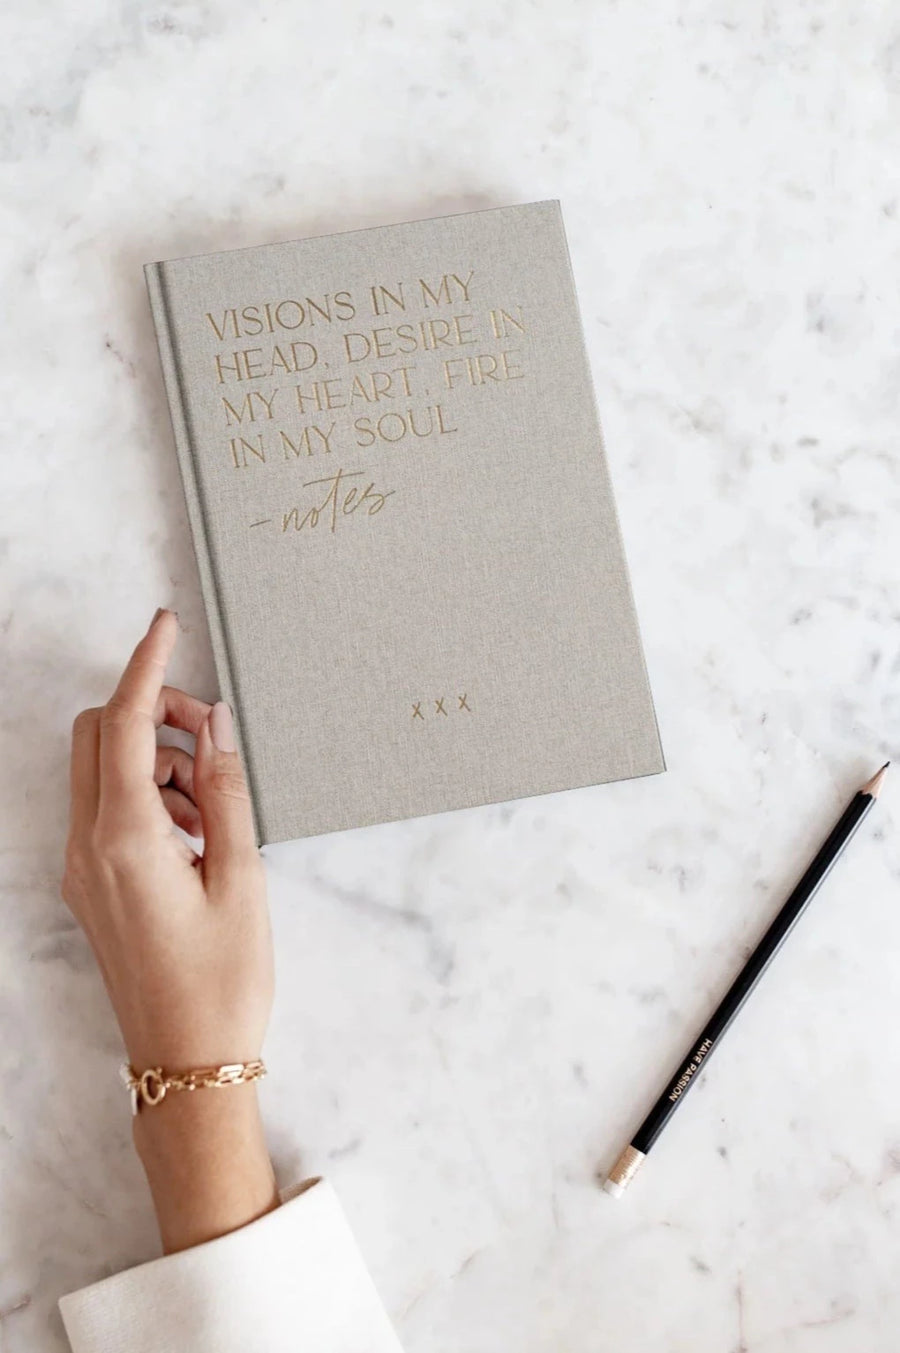 VISIONS IN MY
HEAD, DESIRE IN
MY HEART, FIRE
IN MY SOUL
-notes
X X X
HAVE PASSION